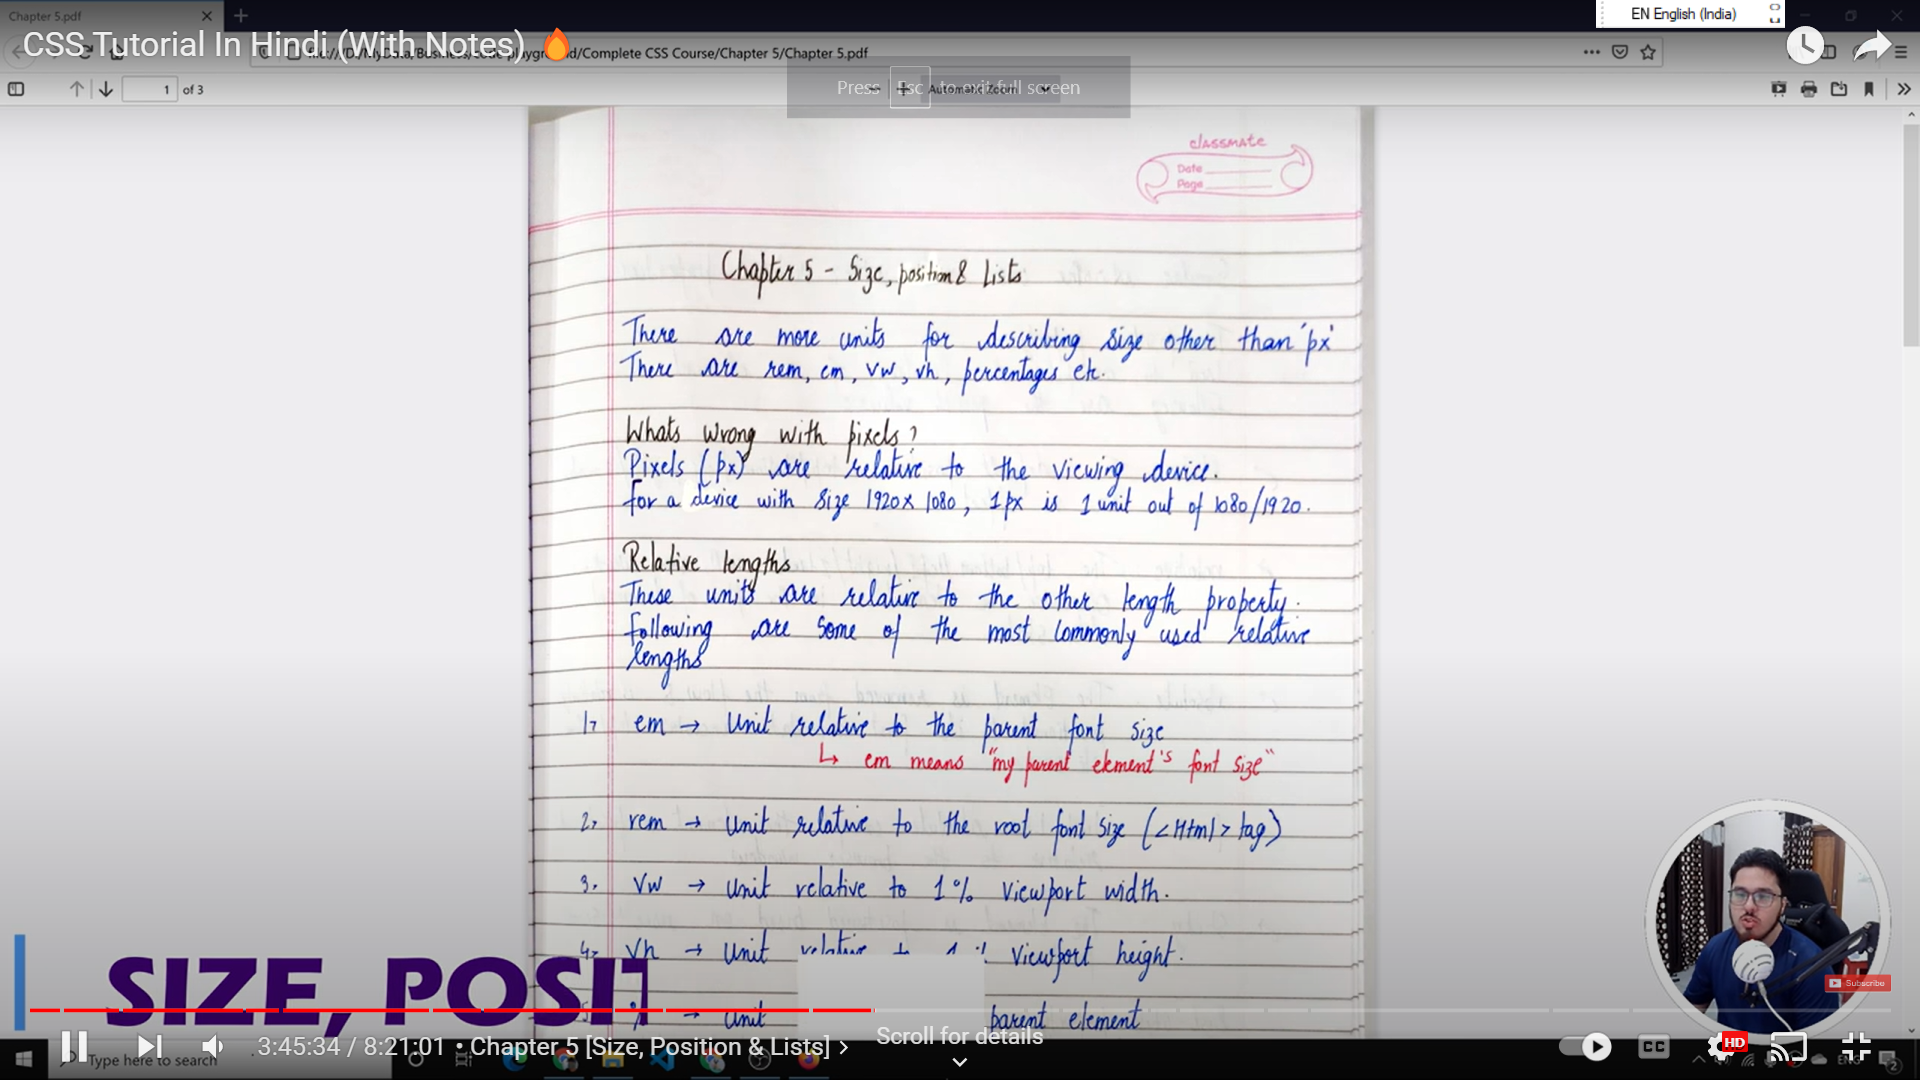 Chapter 5.pdf
EN English (India)
CSS Tutorial In Hindi (With Notes) 🔥
/Complete CSS Course/Chapter 5/Chapter 5.pdf
1 of 3
Press Esc to exit full screen
Automatic Zoom
classmate
Date
Page
Chapter 5 - Size, position & Lists
There are more units for describing size other than 'px'
There are rem, em, vw, vh, percentages etc.
Whats wrong with pixels?
Pixels (px) are relative to the viewing device.
for a device with size 1920x1080, 1px is 1 unit out of 1080/1920.
Relative lengths
These units are relative to the other length property.
following are some of the most commonly used relative
lengths
1, em → Unit relative to the parent font size
↳ em means "my parent element's font size"
2, rem → Unit relative to the root font size (<Html> tag)
3. vw → unit relative to 1% viewport width.
4, vh → Unit relative to 1% viewport height.
5. % → unit parent element
SIZE, POSIT
Subscribe
3:45:34 / 8:21:01 • Chapter 5 [Size, Position & Lists] >
Scroll for details
CC
HD
Type here to search
ENG
2